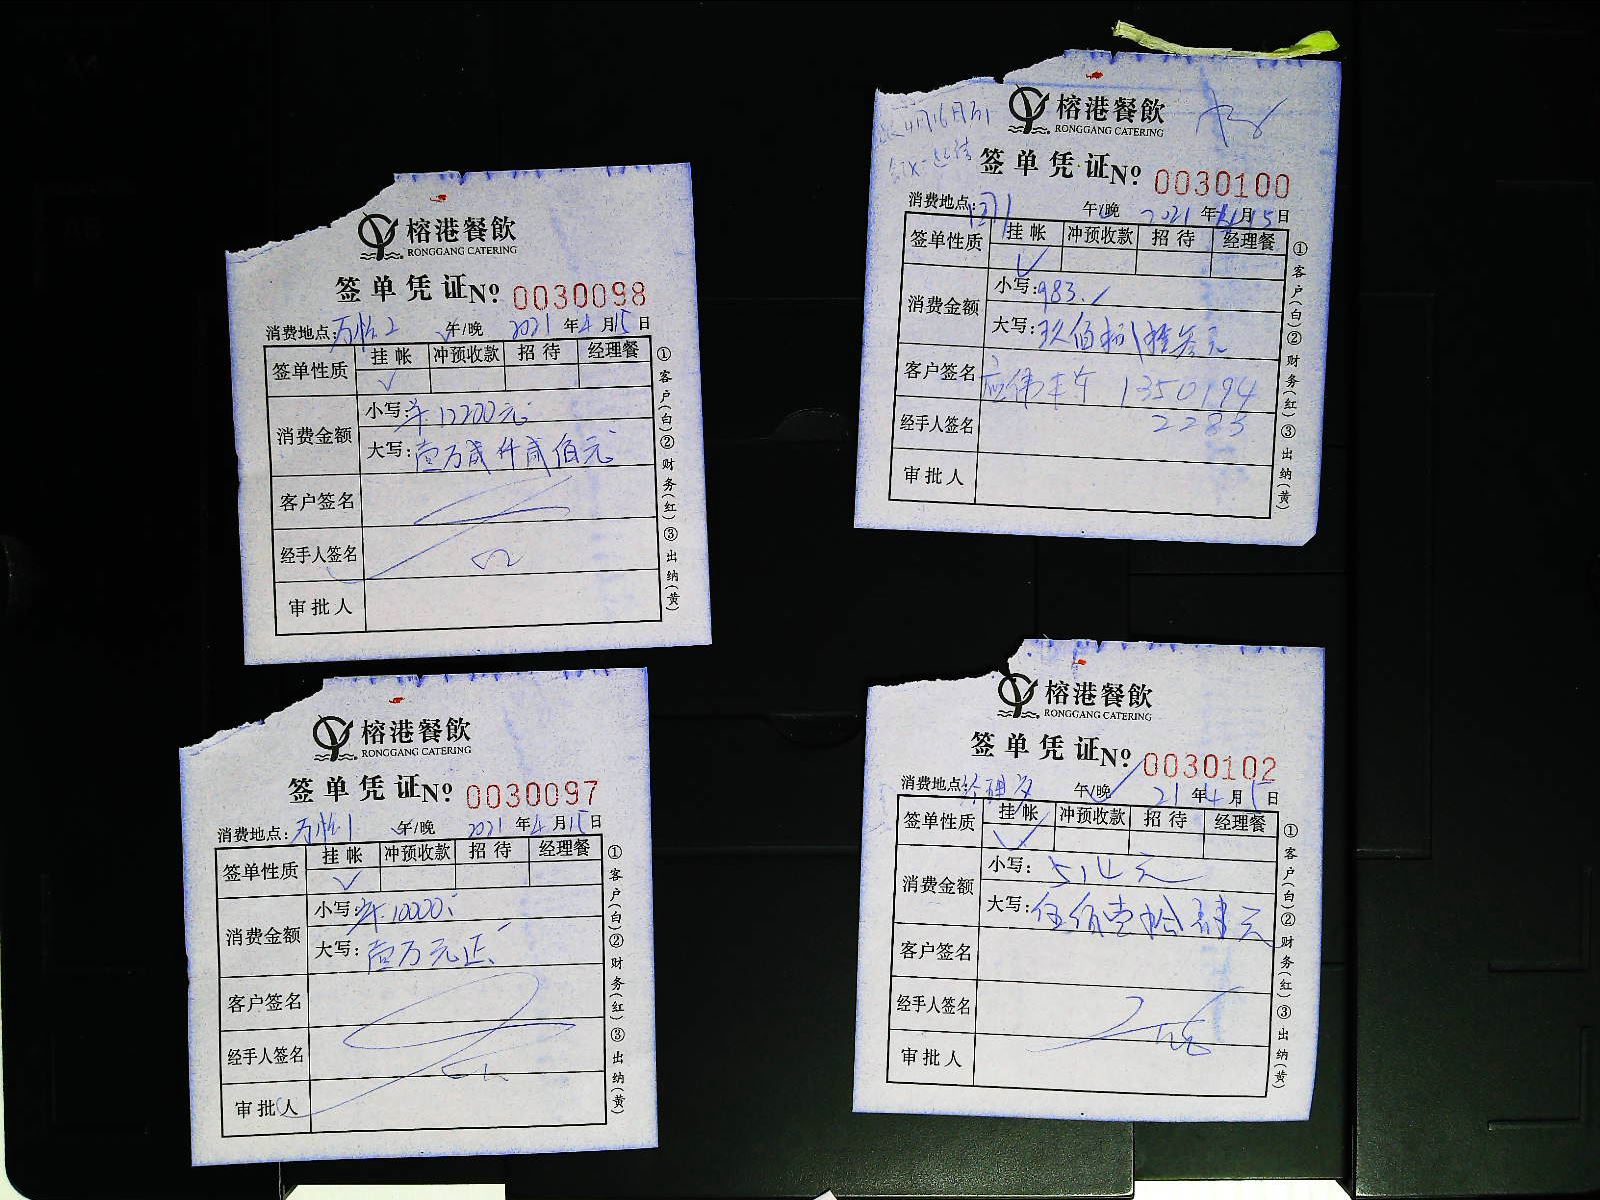 榕港餐飲
RONGGANG CATERING
签单凭证 № 0030098
消费地点:万怡2 午/晚 2021年4月15日
签单性质 挂帐 冲预收款 招待 经理餐
✓
消费金额 小写:¥12200元
大写:壹万贰仟贰佰元
客户签名
经手人签名
审批人
①客户(白)②财务(红)③出纳(黄)
榕港餐飲
RONGGANG CATERING
签单凭证 № 0030100
消费地点: 午/晚 2021年4月15日
签单性质 挂帐 冲预收款 招待 经理餐
✓
消费金额 小写:983.
大写:玖佰捌拾叁元
客户签名 1350194
经手人签名 2283
审批人
①客户(白)②财务(红)③出纳(黄)
榕港餐飲
RONGGANG CATERING
签单凭证 № 0030097
消费地点:万怡1 午/晚 2021年4月15日
签单性质 挂帐 冲预收款 招待 经理餐
✓
消费金额 小写:¥10000
大写:壹万元正
客户签名
经手人签名
审批人
①客户(白)②财务(红)③出纳(黄)
榕港餐飲
RONGGANG CATERING
签单凭证 № 0030102
消费地点: 午/晚 21年4月15日
签单性质 挂帐 冲预收款 招待 经理餐
✓
消费金额 小写:514元
大写:伍佰壹拾肆元
客户签名
经手人签名
审批人
①客户(白)②财务(红)③出纳(黄)